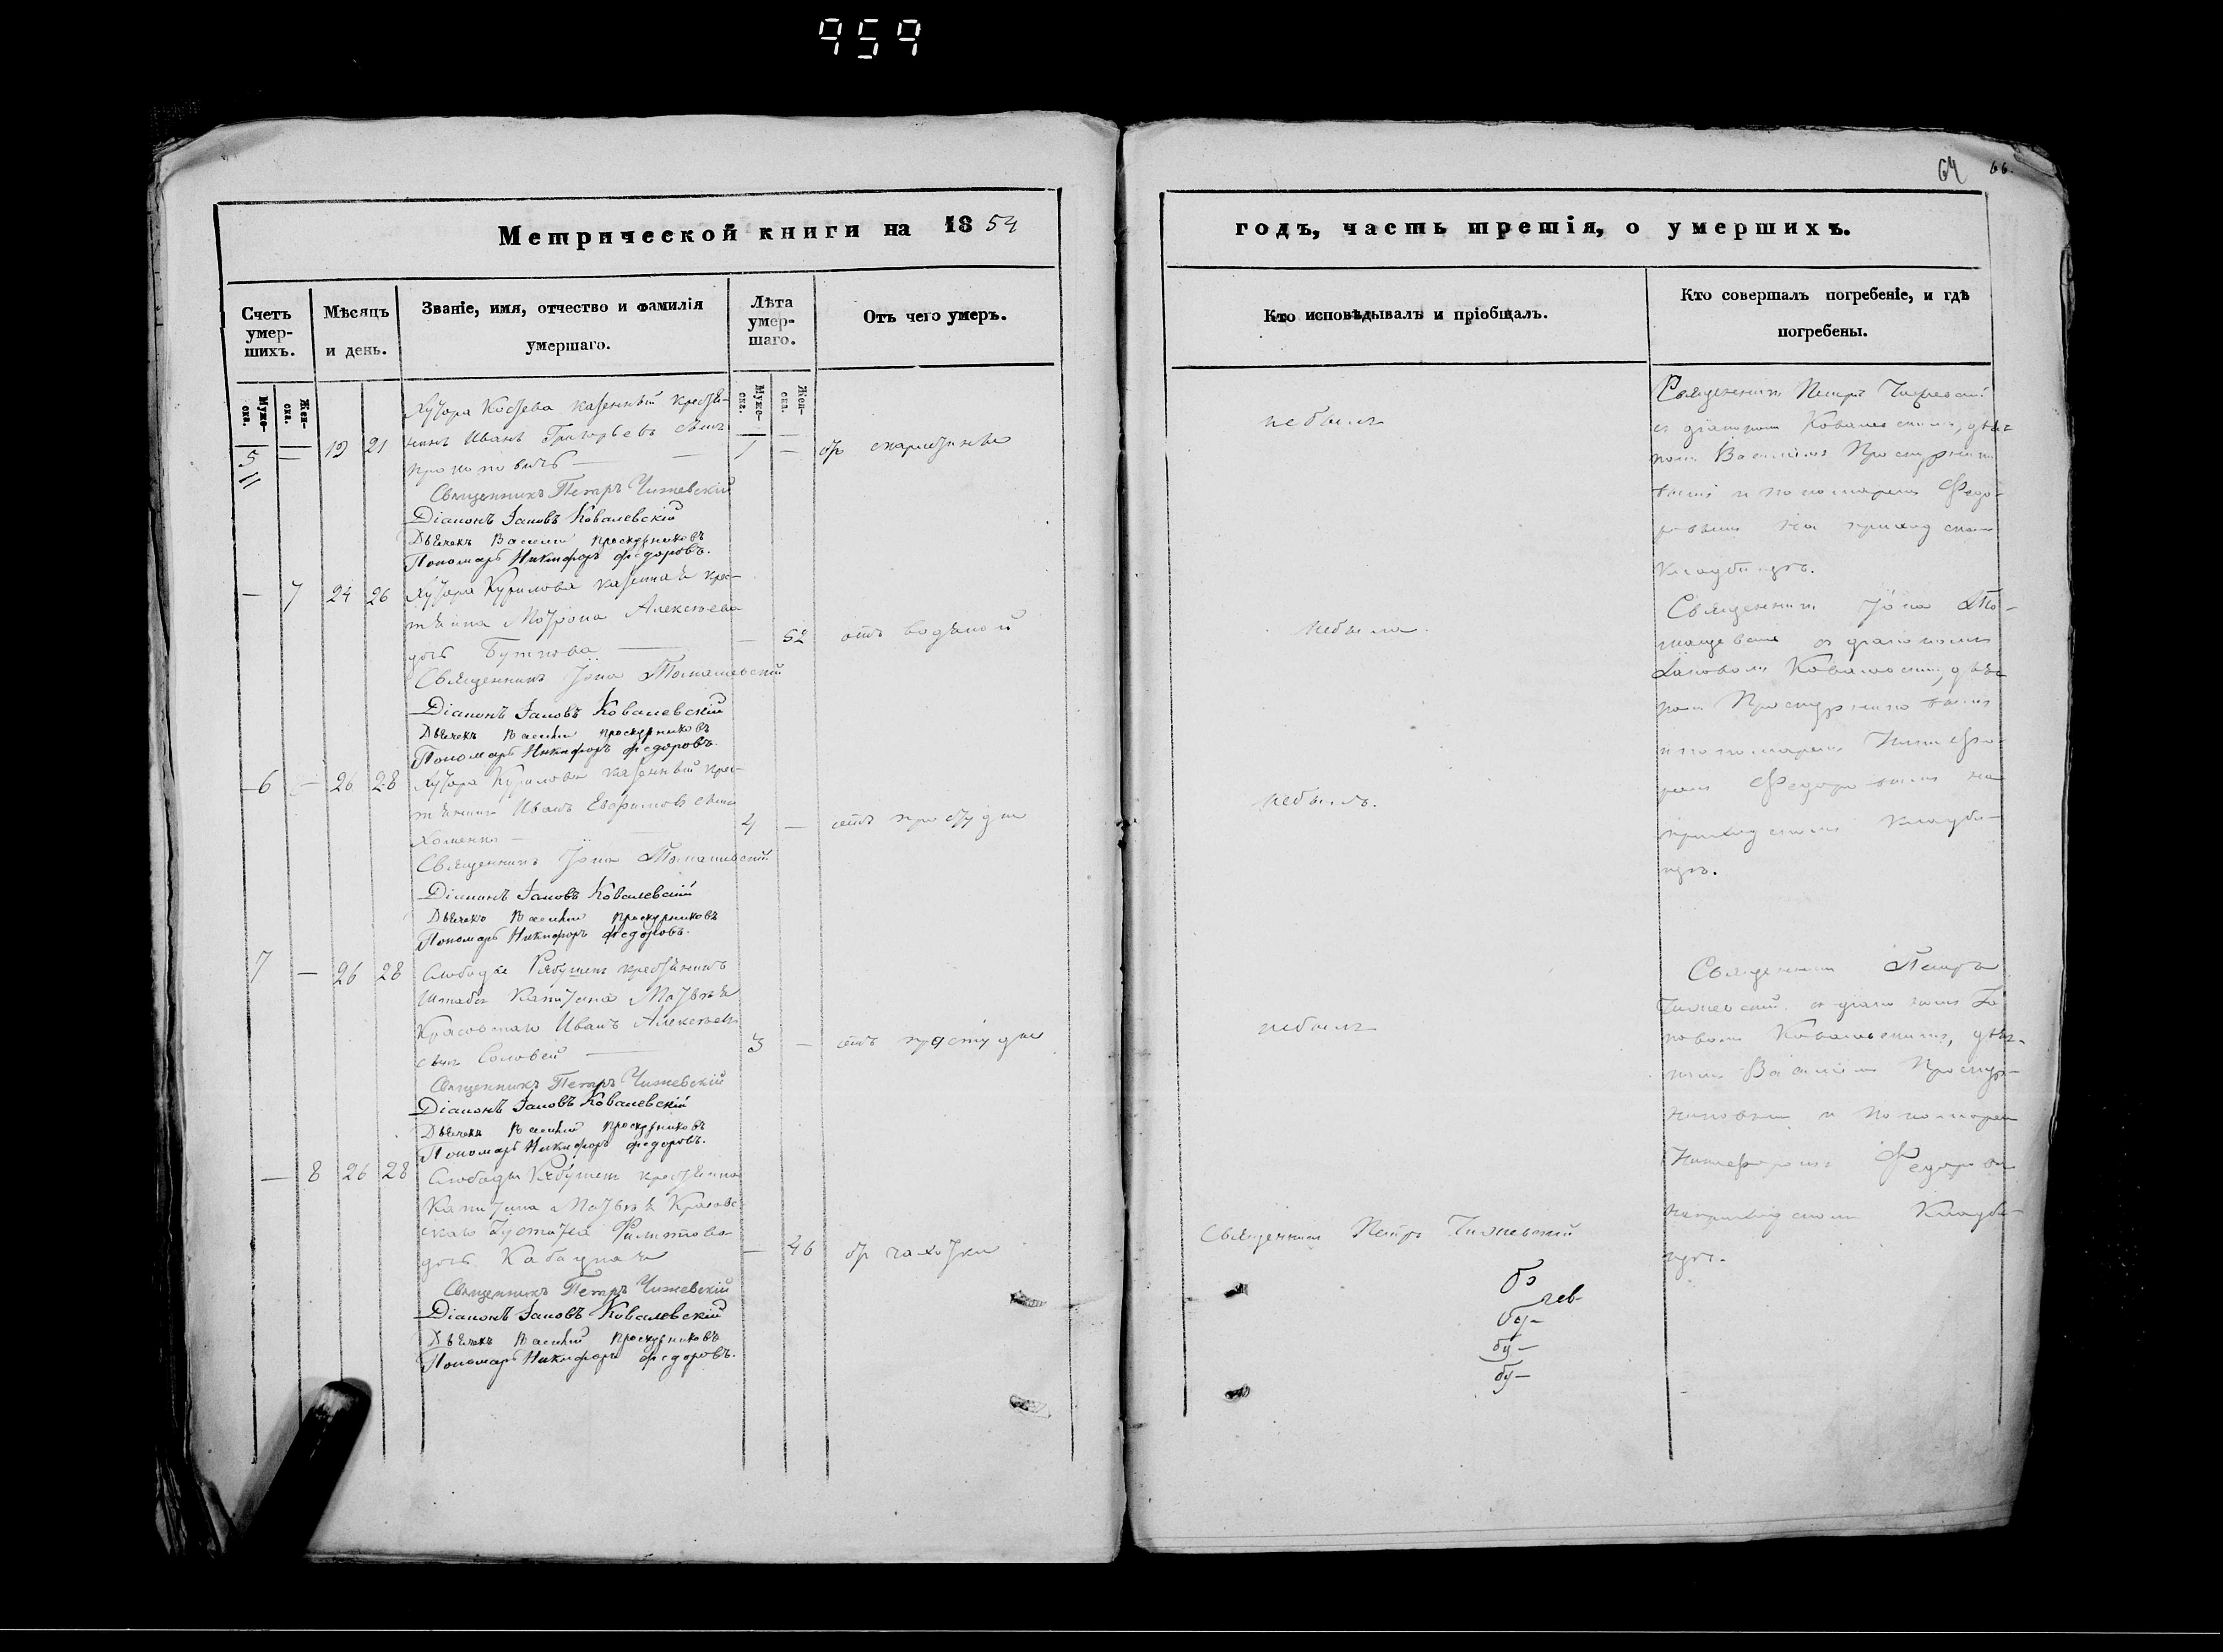 959
64 66.
Метрической книги на 1854
годъ, часть третія, о умершихъ.
Счетъ умер-шихъ.
Мѣсяцъ и день.
Званіе, имя, отчество и фамилія умершаго.
Лѣта умер-шаго.
Отъ чего умеръ.
Кто исповѣдывалъ и пріобщалъ.
Кто совершалъ погребеніе, и гдѣ погребены.
Муже-ска. Жен-ска. Муже-ска. Жен-ска.
5 — 19 21
казенный крестья-
нинъ Иванъ Григорьевъ сынъ
1 —
Священникъ Петръ Чижевскій
Діаконъ Іаковъ Ковалевскій
Дьячекъ Василій Проскурниковъ
Пономарь Никифоръ Федоровъ.
небылъ
Священникъ Петръ
съ діакономъ Ковалевскимъ, дьяч-
комъ Василіемъ Проскурнико-
вымъ и пономаремъ Федо-
ровымъ на приходскомъ
кладбищѣ.
— 7 24 26 Хутора Курилова казенная крес-
тьянка Алексѣева
дочь
— 52 отъ водяной
Священникъ Іона Томашевскій
Діаконъ Іаковъ Ковалевскій
Дьячекъ Василій Проскурниковъ
Пономарь Никифоръ Федоровъ.
небыла
Священникъ Іона То-
съ діакономъ
Іаковомъ Ковалевскимъ, дьяч-
комъ Проскурниковымъ
и пономаремъ Никифо-
ромъ Федоровымъ на
приходскомъ кладби-
щѣ.
6 — 26 28 Хутора Курилова казенный крес-
тьянинъ Иванъ Ефимовъ сынъ
Хоменко —
4 — отъ простуды
Священникъ Іона Томашевскій
Діаконъ Іаковъ Ковалевскій
Дьячекъ Василій Проскурниковъ
Пономарь Никифоръ Федоровъ.
небылъ.
7 — 26 28 Слободы крестьянинъ
Штабсъ Капитана Матвѣя
Красовскаго Иванъ Алексѣевъ
сынъ Соловей —
3 — отъ простуды
Священникъ Петръ Чижевскій
Діаконъ Іаковъ Ковалевскій
Дьячекъ Василій Проскурниковъ
Пономарь Никифоръ Федоровъ.
небылъ
Священникъ Петръ
Чижевскій съ діакономъ Іа-
ковомъ Ковалевскимъ, дьяч-
комъ Василіемъ Проскур-
никовымъ и пономаремъ
Никифоромъ Федоровымъ
на приходскомъ кладби-
щѣ.
— 8 26 28 Слободы крестьянка
Капитана Матвѣя Красовс-
каго
дочь
— 46 отъ чахотки
Священникъ Петръ Чижевскій
Діаконъ Іаковъ Ковалевскій
Дьячекъ Василій Проскурниковъ
Пономарь Никифоръ Федоровъ.
Священникъ Петръ Чижевскій